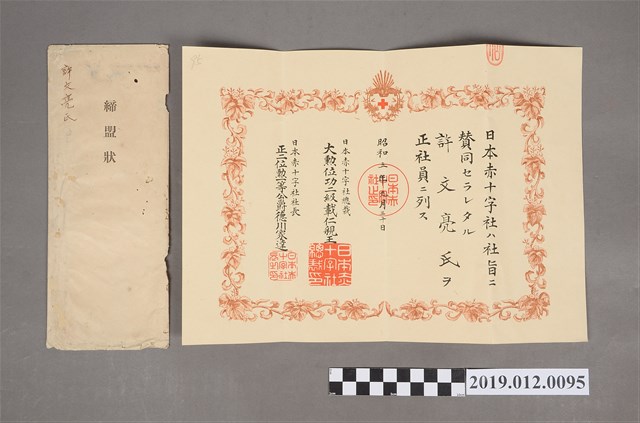 許文亮氏
締盟狀
日本赤十字社ハ社旨ニ
賛同セラレタル
許文亮氏ヲ
正社員ニ列ス
昭和三年四月三十日
日本赤十字社總裁
大勲位功二級載仁親王
日本赤十字社社長
正二位勲一等公爵德川家達
日本赤
十字社
總裁印
日本赤
十字社
長之印
2019.012.0095